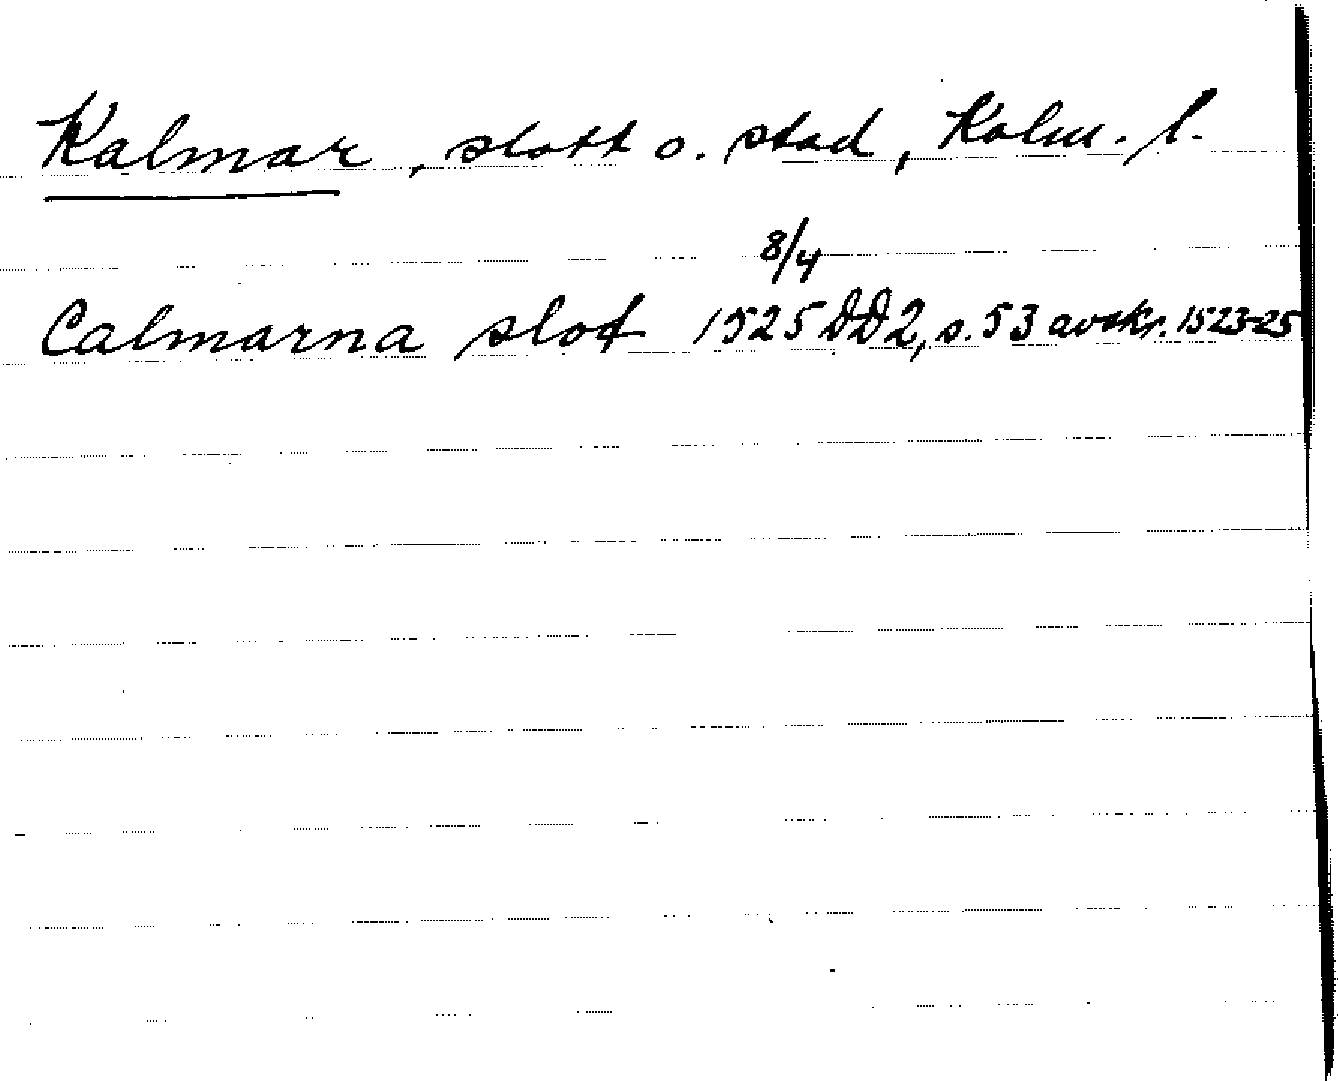 Kalmar, slott o. stad, Kalm. l.
8/4
Calmarna slot 1525 DD2, s. 53 avskr. 1523-25